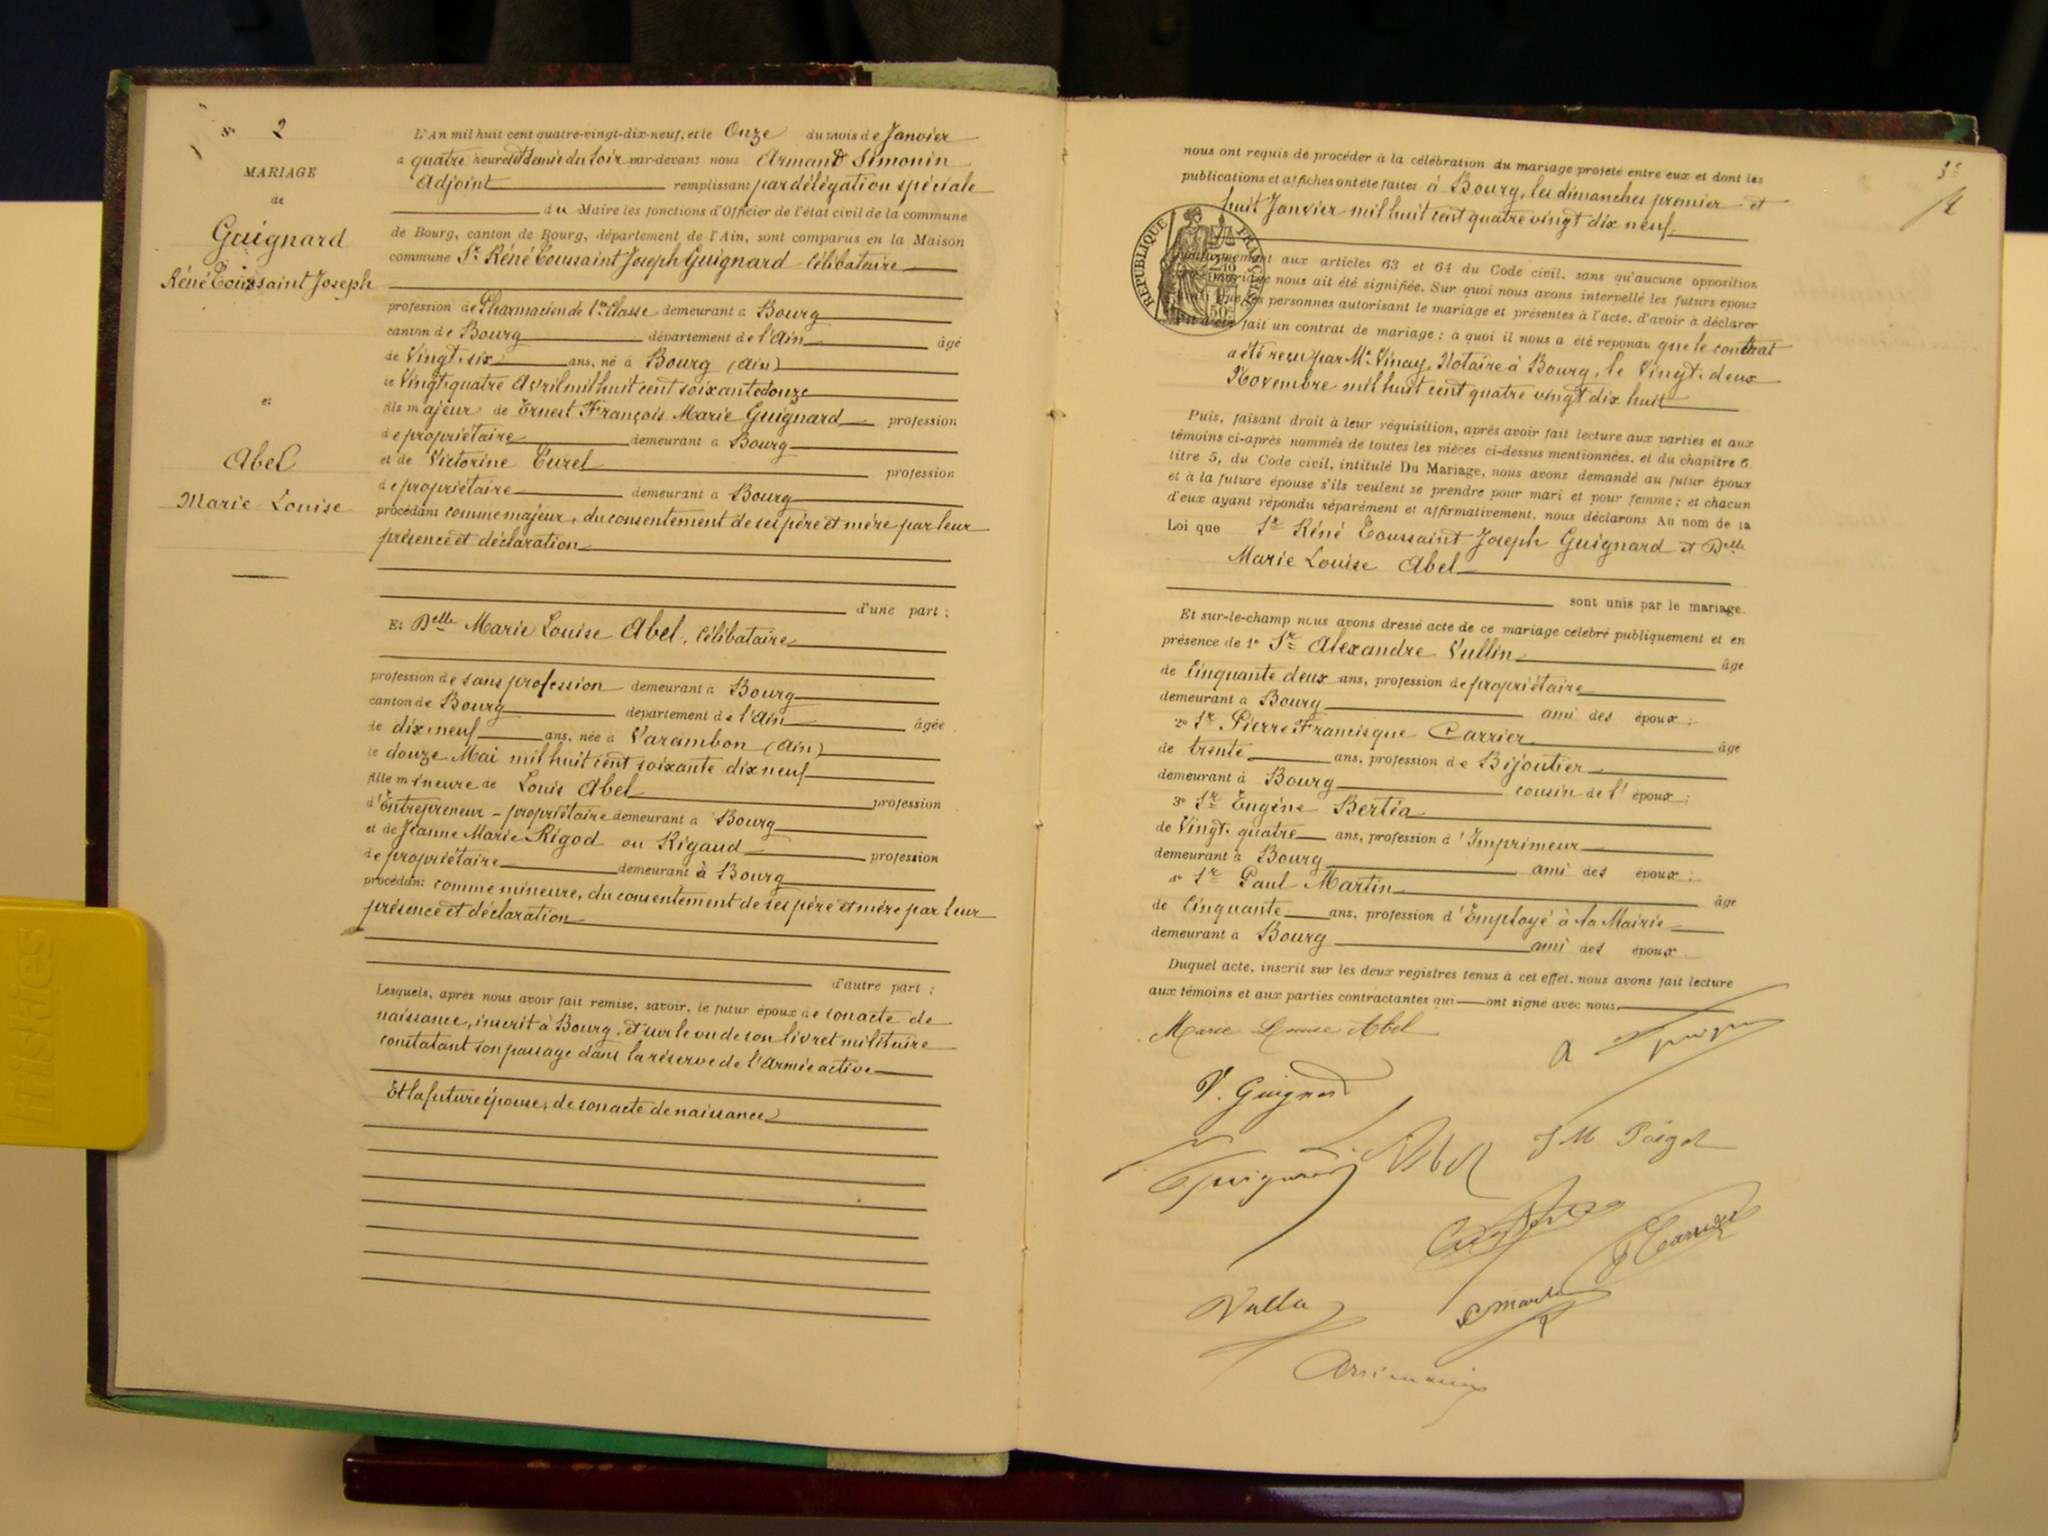 N° 2
MARIAGE
de
Guignard
Réné Toussaint Joseph
et
Abel
Marie Louise
L'An mil huit cent quatre-vingt-dix-neuf, et le Onze du mois de Janvier
à quatre heures et demie du soir par-devant nous Armand Simonin
Adjoint remplissant par délégation spéciale
du Maire les fonctions d'Officier de l'état civil de la commune
de Bourg, canton de Bourg, département de l'Ain, sont comparus en la Maison
commune Sr Réné Toussaint Joseph Guignard célibataire
profession de Pharmacien de 1re classe demeurant à Bourg
canton de Bourg département de l'Ain âgé
de Vingt-six ans, né à Bourg (Ain)
le Vingt quatre Avril mil huit cent soixante douze
fils majeur de Ernest François Marie Guignard profession
de propriétaire demeurant à Bourg
et de Victorine Turel profession
de propriétaire demeurant à Bourg
procédant comme majeur, du consentement de ses père et mère par leur
présence et déclaration
d'une part ;
Et Delle Marie Louise Abel, célibataire
profession de sans profession demeurant à Bourg
canton de Bourg département de l'Ain âgée
de dix-neuf ans, née à Varambon (Ain)
le douze Mai mil huit cent soixante dix neuf
fille mineure de Louis Abel profession
d'Entrepreneur - propriétaire demeurant à Bourg
et de Jeanne Marie Rigod ou Rigaud profession
de propriétaire demeurant à Bourg
procédant comme mineure, du consentement de ses père et mère par leur
présence et déclaration
d'autre part ;
Lesquels, après nous avoir fait remise, savoir, le futur époux de son acte de
naissance, inscrit à Bourg, et sur le vu de son livret militaire
constatant son passage dans la réserve de l'Armée active
Et la future épouse, de son acte de naissance
3e
nous ont requis de procéder à la célébration du mariage projeté entre eux et dont les
publications et affiches ont été faites à Bourg, les dimanches premier et
huit Janvier mil huit cent quatre vingt dix neuf.
REPUBLIQUE FRANÇAISE
Conformément aux articles 63 et 64 du Code civil, sans qu'aucune opposition
mariage nous ait été signifiée. Sur quoi nous avons interpellé les futurs époux
que les personnes autorisant le mariage et présentes à l'acte, d'avoir à déclarer
fait un contrat de mariage ; à quoi il nous a été répondu que le contrat
a été reçu par Me Vinay, Notaire à Bourg, le Vingt-deux
Novembre mil huit cent quatre vingt dix huit
Puis, faisant droit à leur réquisition, après avoir fait lecture aux parties et aux
témoins ci-après nommés de toutes les pièces ci-dessus mentionnées, et du chapitre 6
titre 5, du Code civil, intitulé Du Mariage, nous avons demandé au futur époux
et à la future épouse s'ils veulent se prendre pour mari et pour femme ; et chacun
d'eux ayant répondu séparément et affirmativement, nous déclarons Au nom de la
Loi que Sr Réné Toussaint Joseph Guignard et Delle
Marie Louise Abel
sont unis par le mariage.
Et sur-le-champ nous avons dressé acte de ce mariage célébré publiquement et en
présence de 1° Sr Alexandre Vullin âgé
de Cinquante deux ans, profession de propriétaire
demeurant à Bourg ami des époux ;
2° Sr Pierre Francisque Carrier âgé
de trente ans, profession de Bijoutier
demeurant à Bourg cousin de l'époux ;
3° Sr Eugène Bertéa
de Vingt-quatre ans, profession d'Imprimeur
demeurant à Bourg ami des époux ;
4° Sr Paul Martin âgé
de Cinquante ans, profession d'Employé à la Mairie
demeurant à Bourg ami des époux.
Duquel acte, inscrit sur les deux registres tenus à cet effet, nous avons fait lecture
aux témoins et aux parties contractantes qui ont signé avec nous.
Marie Louise Abel
V. Guignard
Guignard Abel J M Rigod
Carrier
Martin